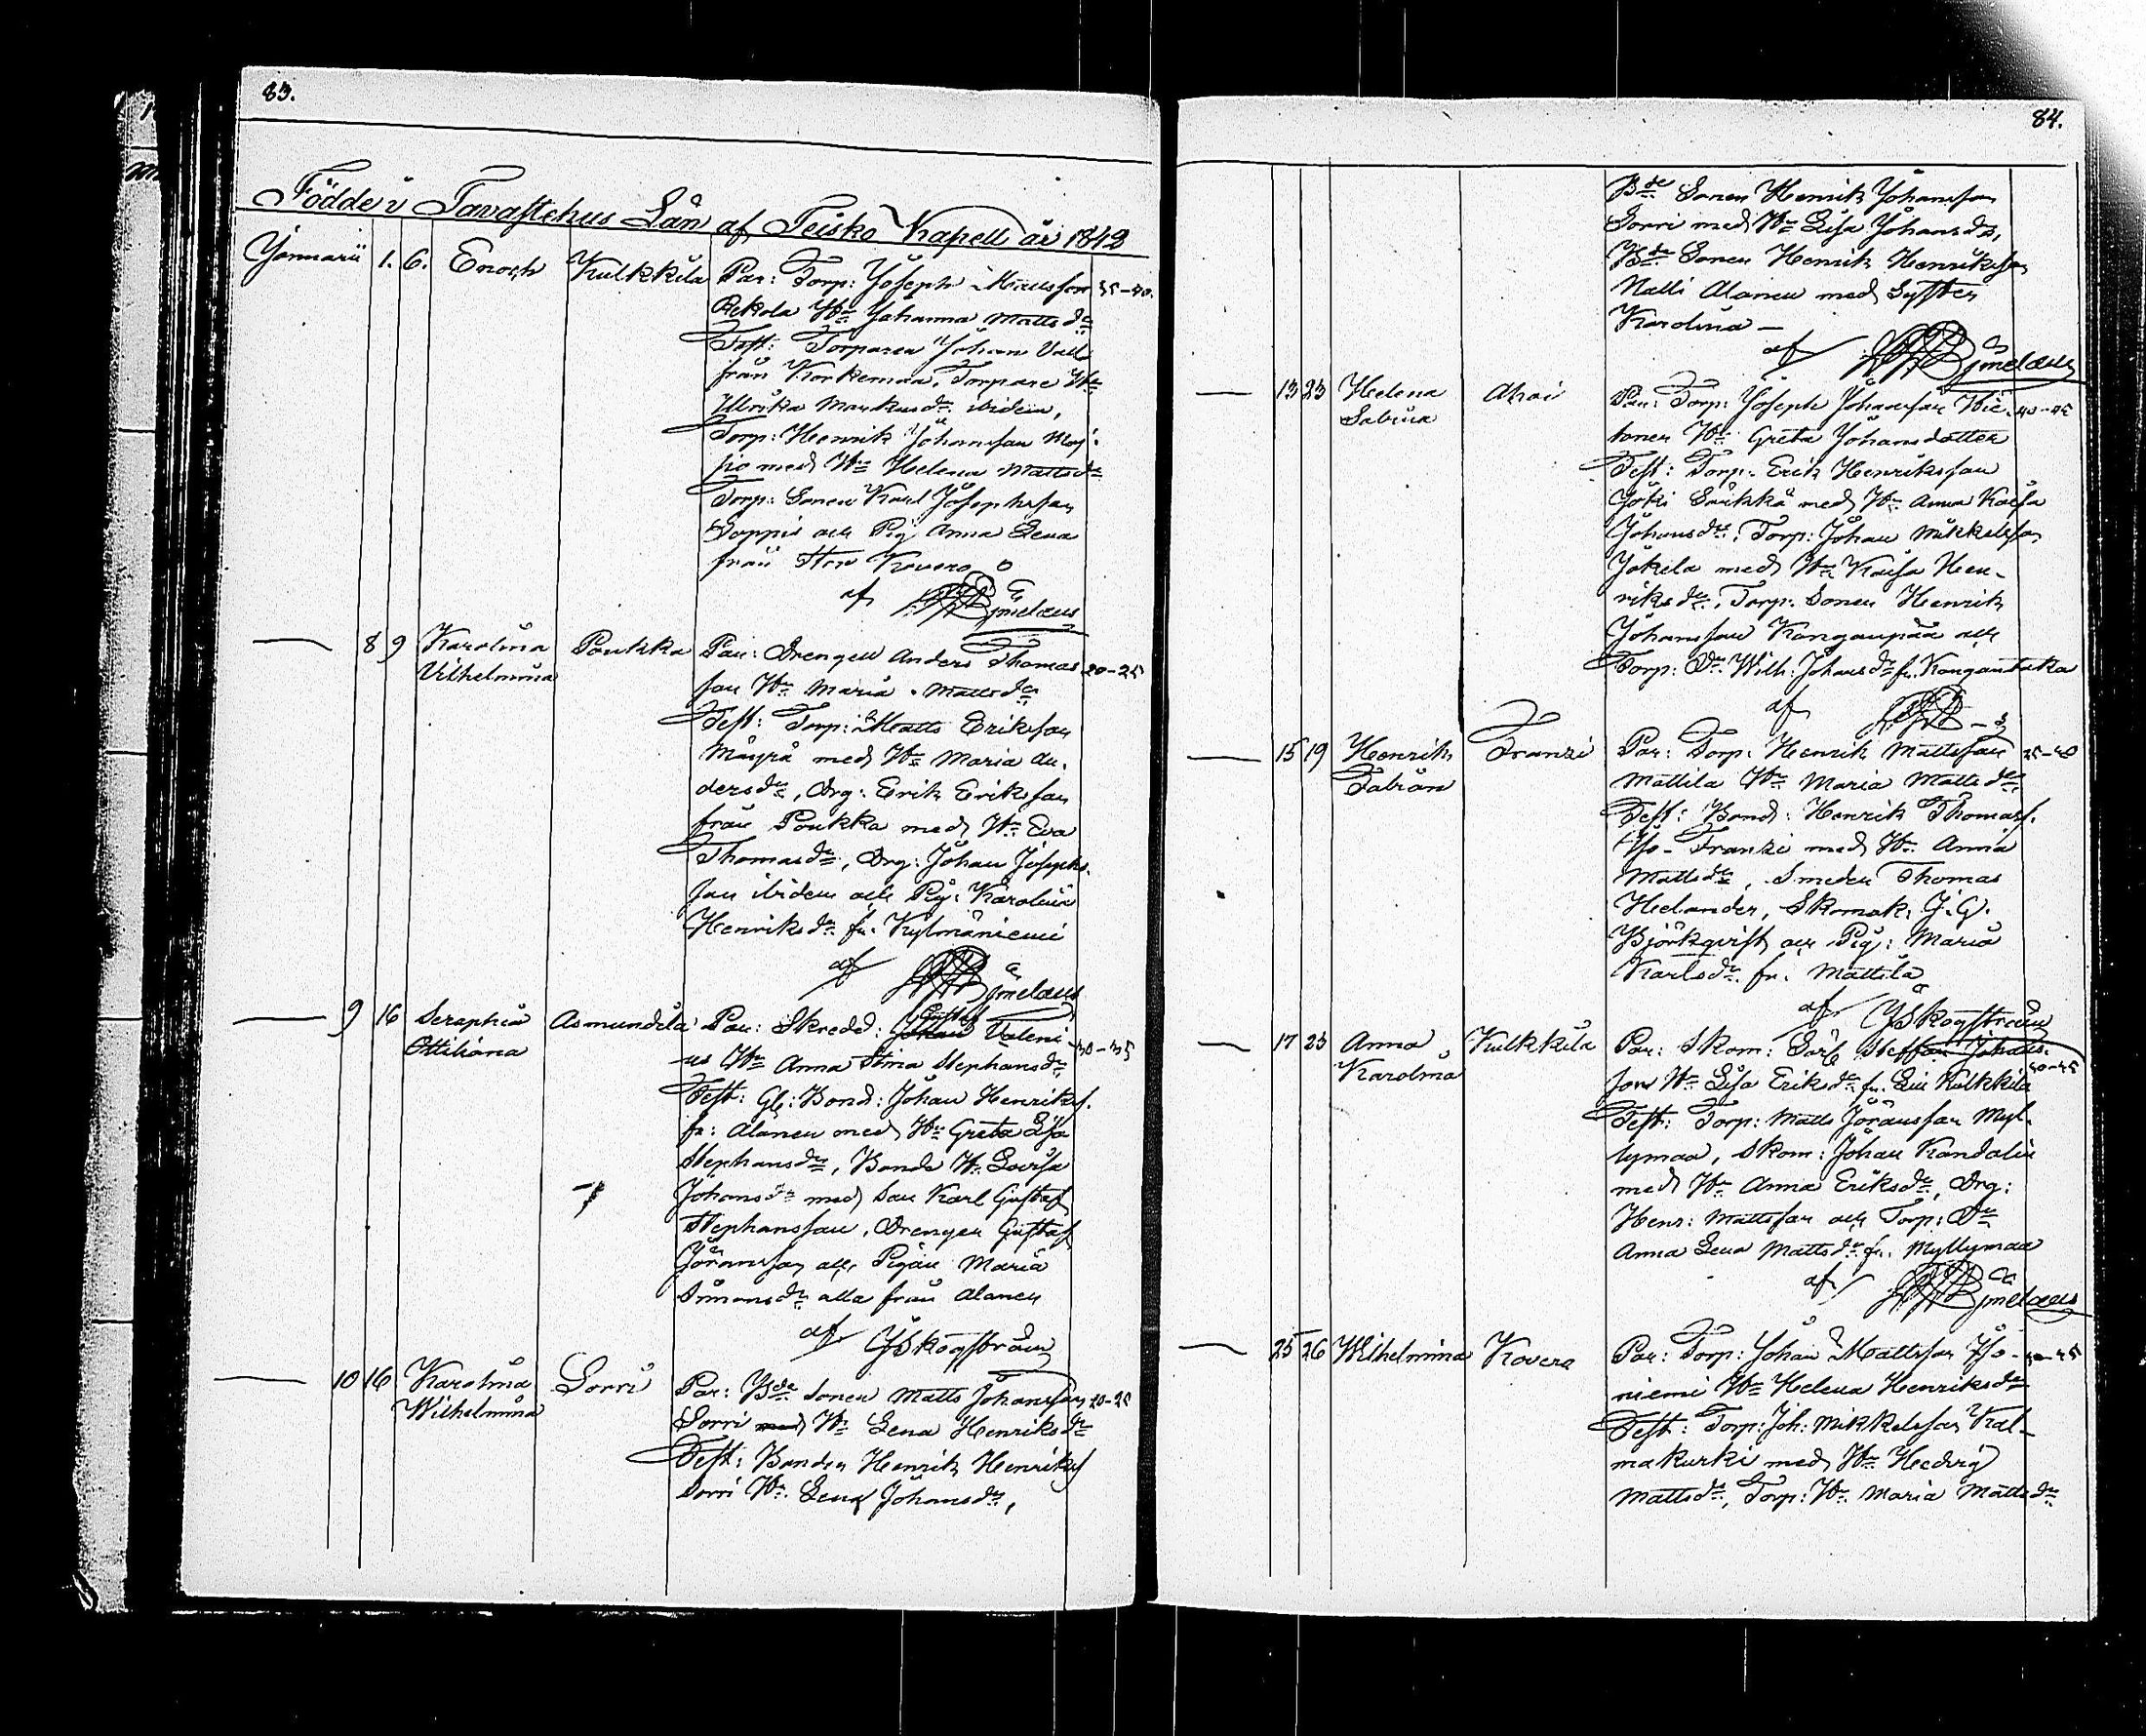 83.
Födde i Tavastehus Län af Teisko Kapell år 1842
Januarii 1. 6. Enoch Kulkkila Par: Torp: Joseph Mattsson 35-40.
Rekola H:u Johanna Matts d:r
Test: Torparen Johan
från Korkemaa, Torpare H:u
Ulrika Markus d:r ibidem,
Torp: Henrik Johansson
med H:u Helena Matts d:r
Torp: Sonen Karl Josephsson
Soppis och Pig Anna Lena
från Kovero
af
8 9 Karolina Poukka Par: Drengen Anders Thomas- 20-25
Vilhelmina son H:u Maria Matts d:r
Test: Torp: Matts Eriksson
Mäyrä med H:u Maria An-
ders d:r, Drg: Erik Eriksson
från Poukka med H:u Eva
Thomas d:r, Drg: Johan Josephs-
son ibidem och Pig: Karolina
Henriks d:r fr. Kylmäniemi
af
9 16 Seraphia Asmundila Par: Skredd: Gustaf Valeni- 30-35
Ottiliana us H:u Anna Stina Stephans d:r
Test: Gl: Bond: Johan Henriks.
fr: Alanen med H:u Greta Lisa
Stephans d:r, Bonde H. Lovisa
Johans d:r med Son Karl Gustaf
Stephansson, Drengen Gustaf
Göransson och Pigan Maria
Simons d:r alla från Alanen
af J Skogström
10 16 Karolina Sorri Par: B:de Sonen Matts Johansson 20-25
Wilhelmina Sorri med H:u Lena Henriks d:r
Test: Bonden Henrik Henriks
Sorri H:u Lena Johans d:r,
84.
B:de Sonen Henrik Johansson
Sorri med H:u Lisa Johans d:r,
B:de Sonen Henrik Henriksson
Alanen med Syster
Karolina —
af
13 23 Helena Ahoi Par: Torp: Joseph Johansson 40-45
Sabina H:u Greta Johansdotter
Test: Torp: Erik Henriksson
med H:u Anna Kaisa
Johans d:r, Torp: Johan Mikkelsson
Jokela med H:u Kaisa Hen-
riks d:r, Torp: Sonen Henrik
Johansson Kangaspää och
Torp: D:r Wilh: Johans d:r fr.
af
15 19 Henrik Franzi Par: Torp: Henrik Mattsson 35-40
Fabian Mattila H:u Maria Matts d:r
Test: Bond: Henrik Thomass.
Iso-Franzi med H:u Anna
Matts d:r, Smeden Thomas
Helander, Skomak. J. G.
Björkqvist och Pig: Maria
Karls d:r fr. Mattila
af J Skogström
17 23 Anna Kulkkila Par: Skom: Lärl Steffan Johans- 40-45
Karolina son H:u Lisa Eriks d:r fr. Kulkkila
Test: Torp: Matts Göransson Myl-
lymaa, Skom: Johan Kandalin
med H:u Anna Eriks d:r, Drg:
Henr: Mattsson och Torp: D:r
Anna Lena Matts d:r fr. Myllymaa
af
25 26 Wilhelmina Kovero Par: Torp: Johan Mattsson Iso-
niemi H:u Helena Henriks d:r
Test: Torp: Joh: Mikkelsson Kal-
makurki med H:u Hedvig
Matts d:r, Torp: H:u Maria Matts d:r